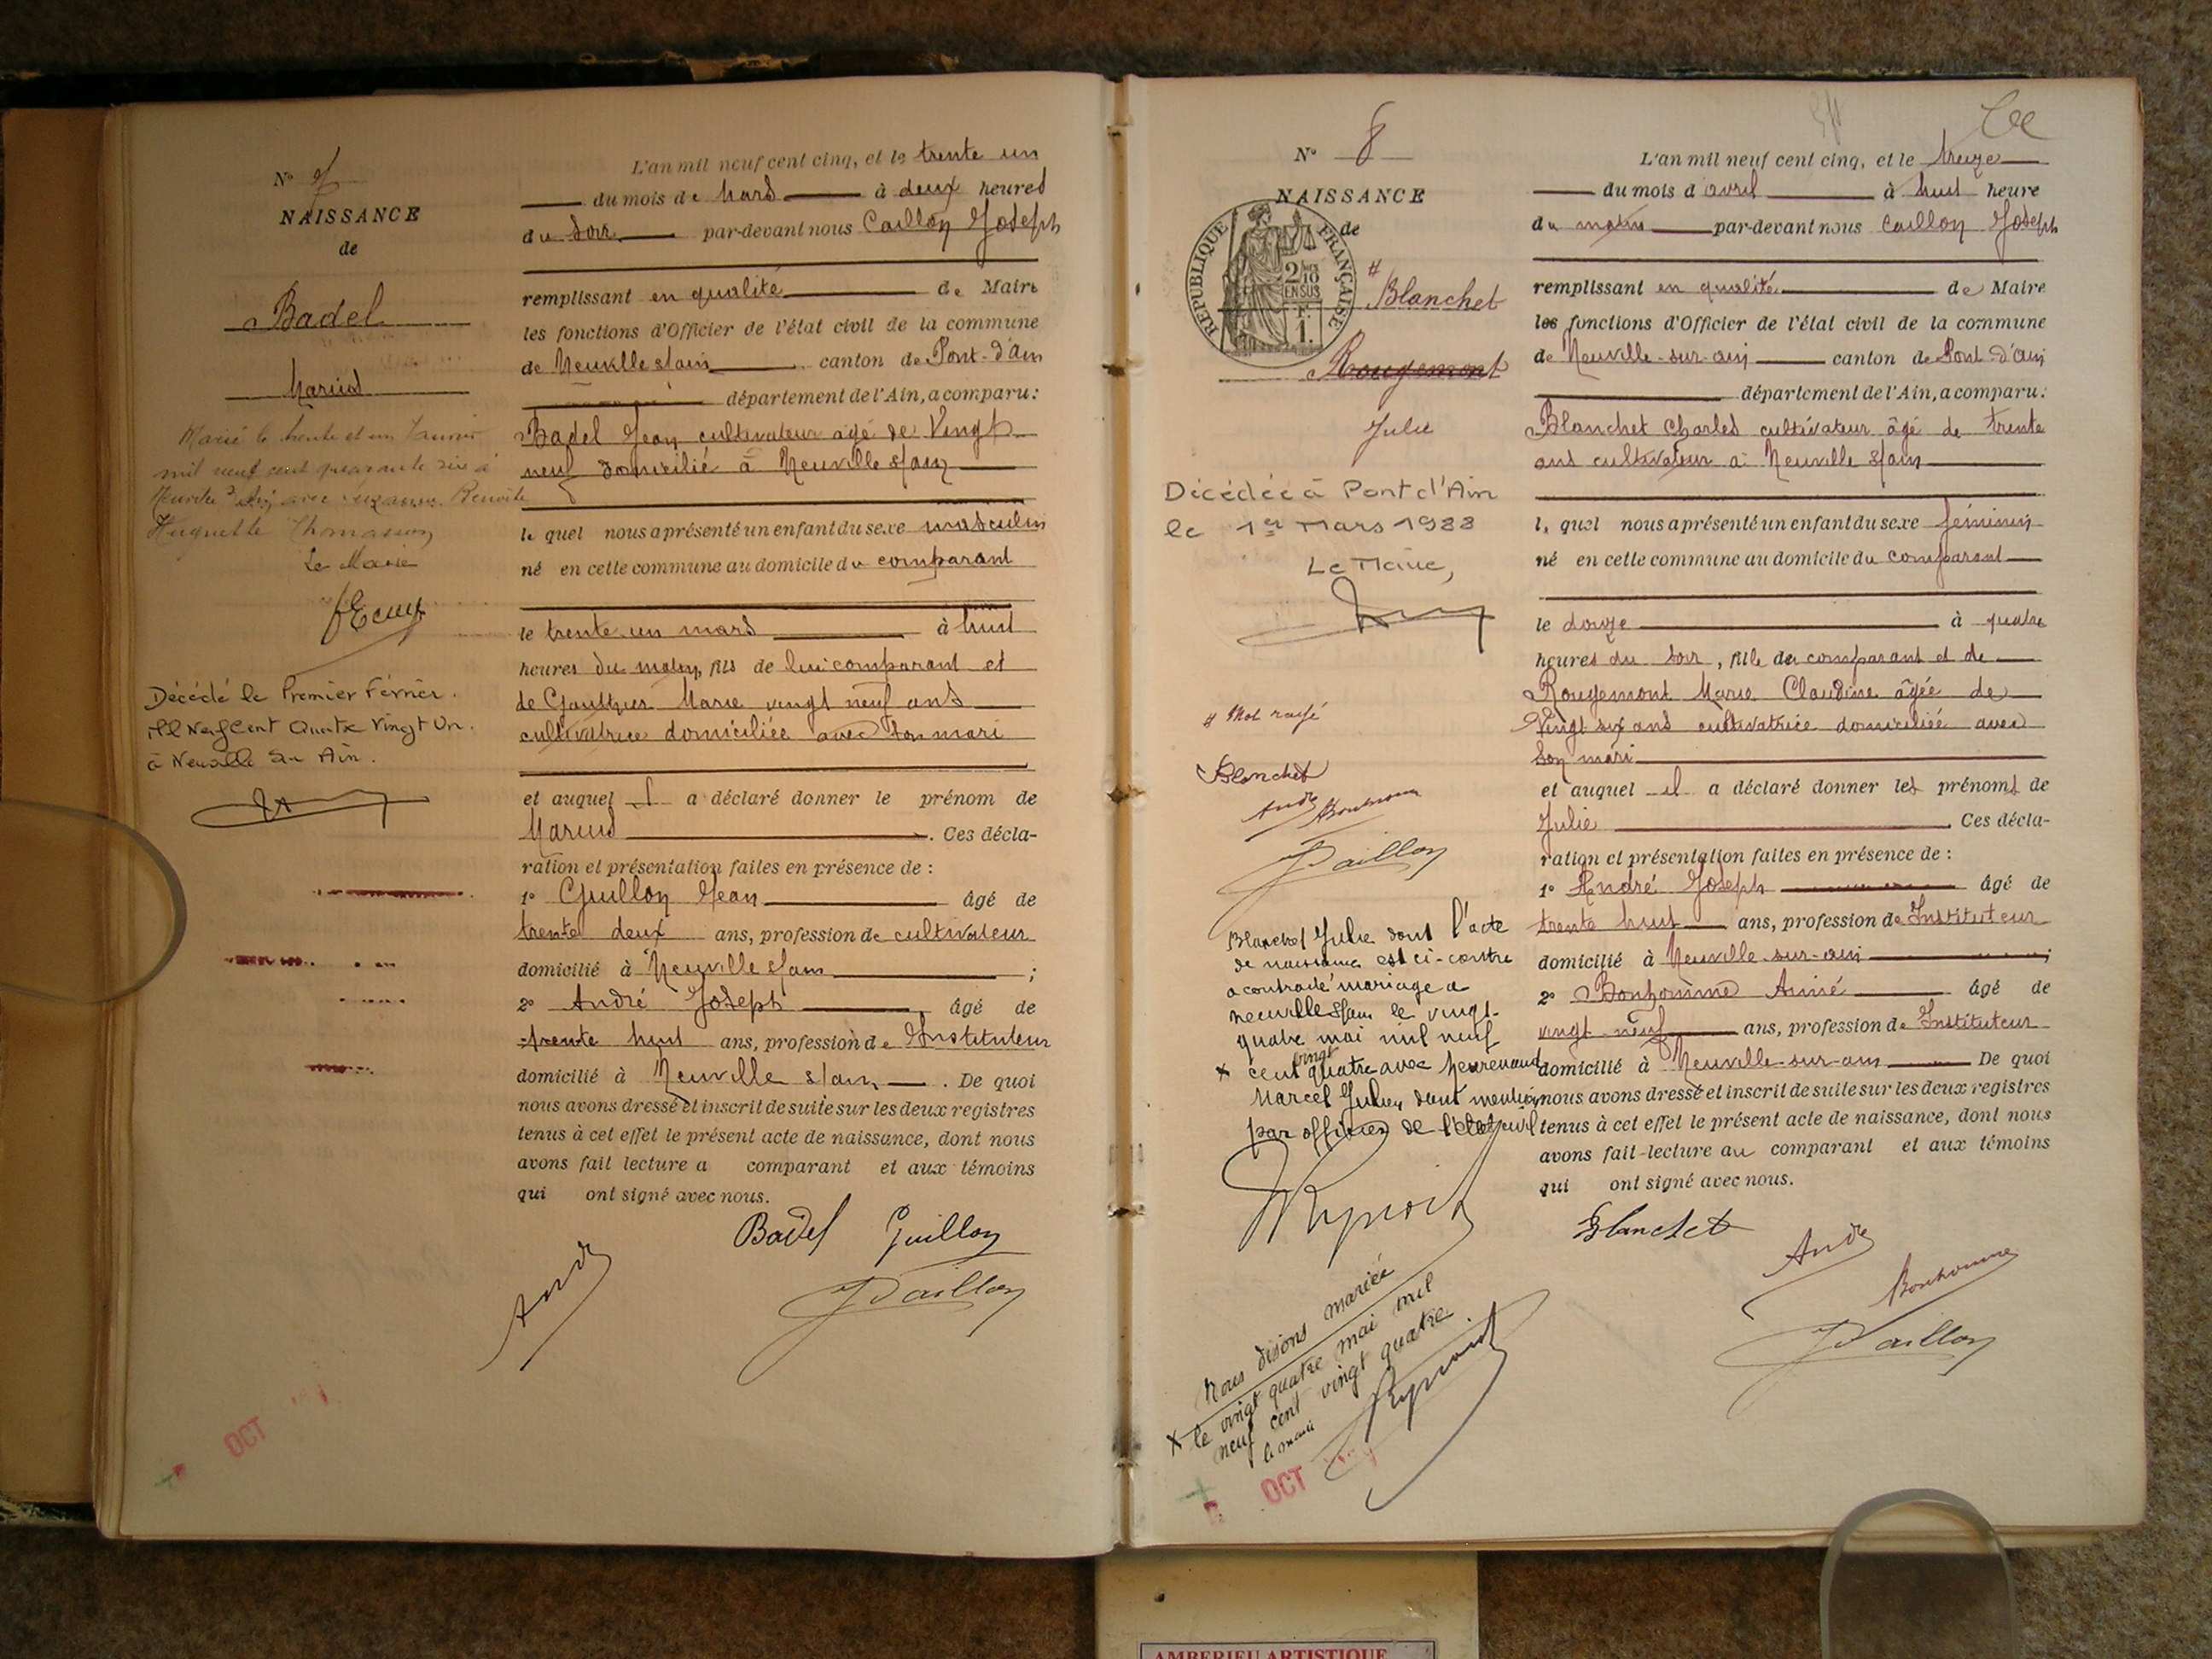 N° 7
NAISSANCE
de
Badel
Marius
Marié le trente et un Janvier
mil neuf cent quarante six à
Neuville s/Ain avec Suzanne Benoîte
Huguette Thomasson
Le Maire
Décédé le Premier Février
Mil Neuf Cent Quatre Vingt Un
à Neuville sur Ain.
L'an mil neuf cent cinq, et le trente un
du mois de Mars à deux heures
du Soir par-devant nous Caillon Joseph
remplissant en qualité de Maire
les fonctions d'Officier de l'état civil de la commune
de Neuville s/ain canton de Pont-d'Ain
département de l'Ain, a comparu:
Badel Jean cultivateur âgé de Vingt
neuf domicilié à Neuville s/ain
le quel nous a présenté un enfant du sexe masculin
né en cette commune au domicile du comparant
le trente un mars à huit
heures du matin, fils de lui comparant et
de Gaulthier Marie vingt neuf ans
cultivatrice domiciliée avec son mari
et auquel il a déclaré donner le prénom de
Marius. Ces décla-
ration et présentation faites en présence de :
1° Guillon Jean âgé de
trente deux ans, profession de cultivateur
domicilié à Neuville s/ain ;
2° André Joseph âgé de
trente huit ans, profession de Instituteur
domicilié à Neuville s/ain. De quoi
nous avons dressé et inscrit de suite sur les deux registres
tenus à cet effet le présent acte de naissance, dont nous
avons fait lecture a comparant et aux témoins
qui ont signé avec nous.
Badel Guillon
André
J Caillon
OCT
N° 8
NAISSANCE
de
REPUBLIQUE FRANÇAISE
2/10
EN SUS
1 F.
# Blanchet
Rougemont
Julie
Décédée à Pont d'Ain
le 1er Mars 1988
Le Maire,
# Mot rayé
Blanchet
André Bonhomme
J Caillon
Blanchet Julie dont l'acte
de naissance est ci-contre
a contracté mariage a
Neuville s/ain le vingt-
quatre mai mil neuf
vingt
x cent quatre avec
Marcel Julien dont mention
par officier de l'etat civil
Nous disons mariée
x le vingt quatre mai mil
neuf cent vingt quatre.
le maire
OCT
L'an mil neuf cent cinq, et le treize
du mois d avril à huit heure
du matin par-devant nous Caillon Joseph
remplissant en qualité de Maire
les fonctions d'Officier de l'état civil de la commune
de Neuville-sur-ain canton de Pont-d'ain
département de l'Ain, a comparu:
Blanchet Charles cultivateur âgé de trente
ans cultivateur à Neuville s/ain
l, quel nous a présenté un enfant du sexe féminin
né en cette commune au domicile du comparant
le douze à quatre
heures du soir, fille du comparant et de
Rougemont Marie Claudine âgée de
Vingt six ans cultivatrice domiciliée avec
son mari
et auquel il a déclaré donner les prénoms de
Julie. Ces décla-
ration et présentation faites en présence de :
1° André Joseph âgé de
trente huit ans, profession de Instituteur
domicilié à Neuville-sur-ain ;
2° Bonhomme Aimé âgé de
vingt neuf ans, profession de Instituteur
domicilié à Neuville-sur-ain De quoi
nous avons dressé et inscrit de suite sur les deux registres
tenus à cet effet le présent acte de naissance, dont nous
avons fait lecture au comparant et aux témoins
qui ont signé avec nous.
Blanchet
André
Bonhomme
J Caillon
AMBERIEU ARTISTIQUE